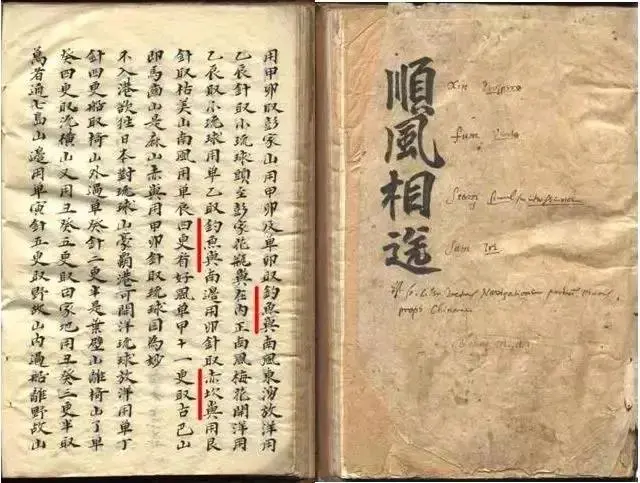 用甲卯取彭家山用甲卯及單卯取釣魚嶼南風東湧放洋用
乙辰針取小琉球頭至彭家花瓶嶼在內正南風梅花開洋用
乙辰取小琉球用單乙取釣魚嶼南邊用卯針取赤坎嶼用艮
針取枯美山南風用單辰四更看好風單甲十一更取古巴山
即馬齒山是麻山赤嶼用甲卯針取琉球國為妙
不入港欲往日本對琉球山豪霸港可開洋琉球放洋用單丁
針四更船取椅山外過單癸針二更半是葉壁山離椅山了單
癸四更取流橫山又用丑癸五更取田家地用丑癸三更半取
萬者通七島山邊用單寅針五更取野故山內過船離野故山
順風相送
Xin
fum